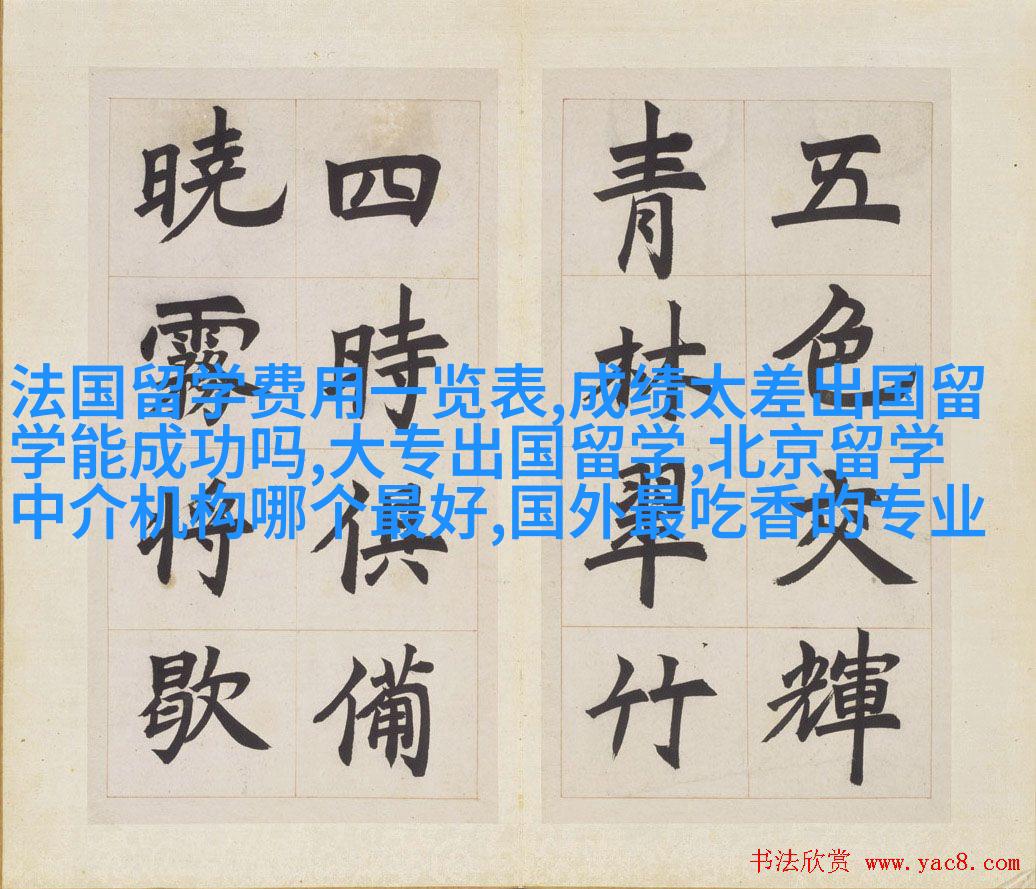 五色交輝
青林翠竹
四時俱備
曉霧將歇
法国留学费用一览表,成绩太差出国留
学能成功吗,大专出国留学,北京留学
中介机构哪个最好,国外最吃香的专业
书法欣赏 www.yac8.com